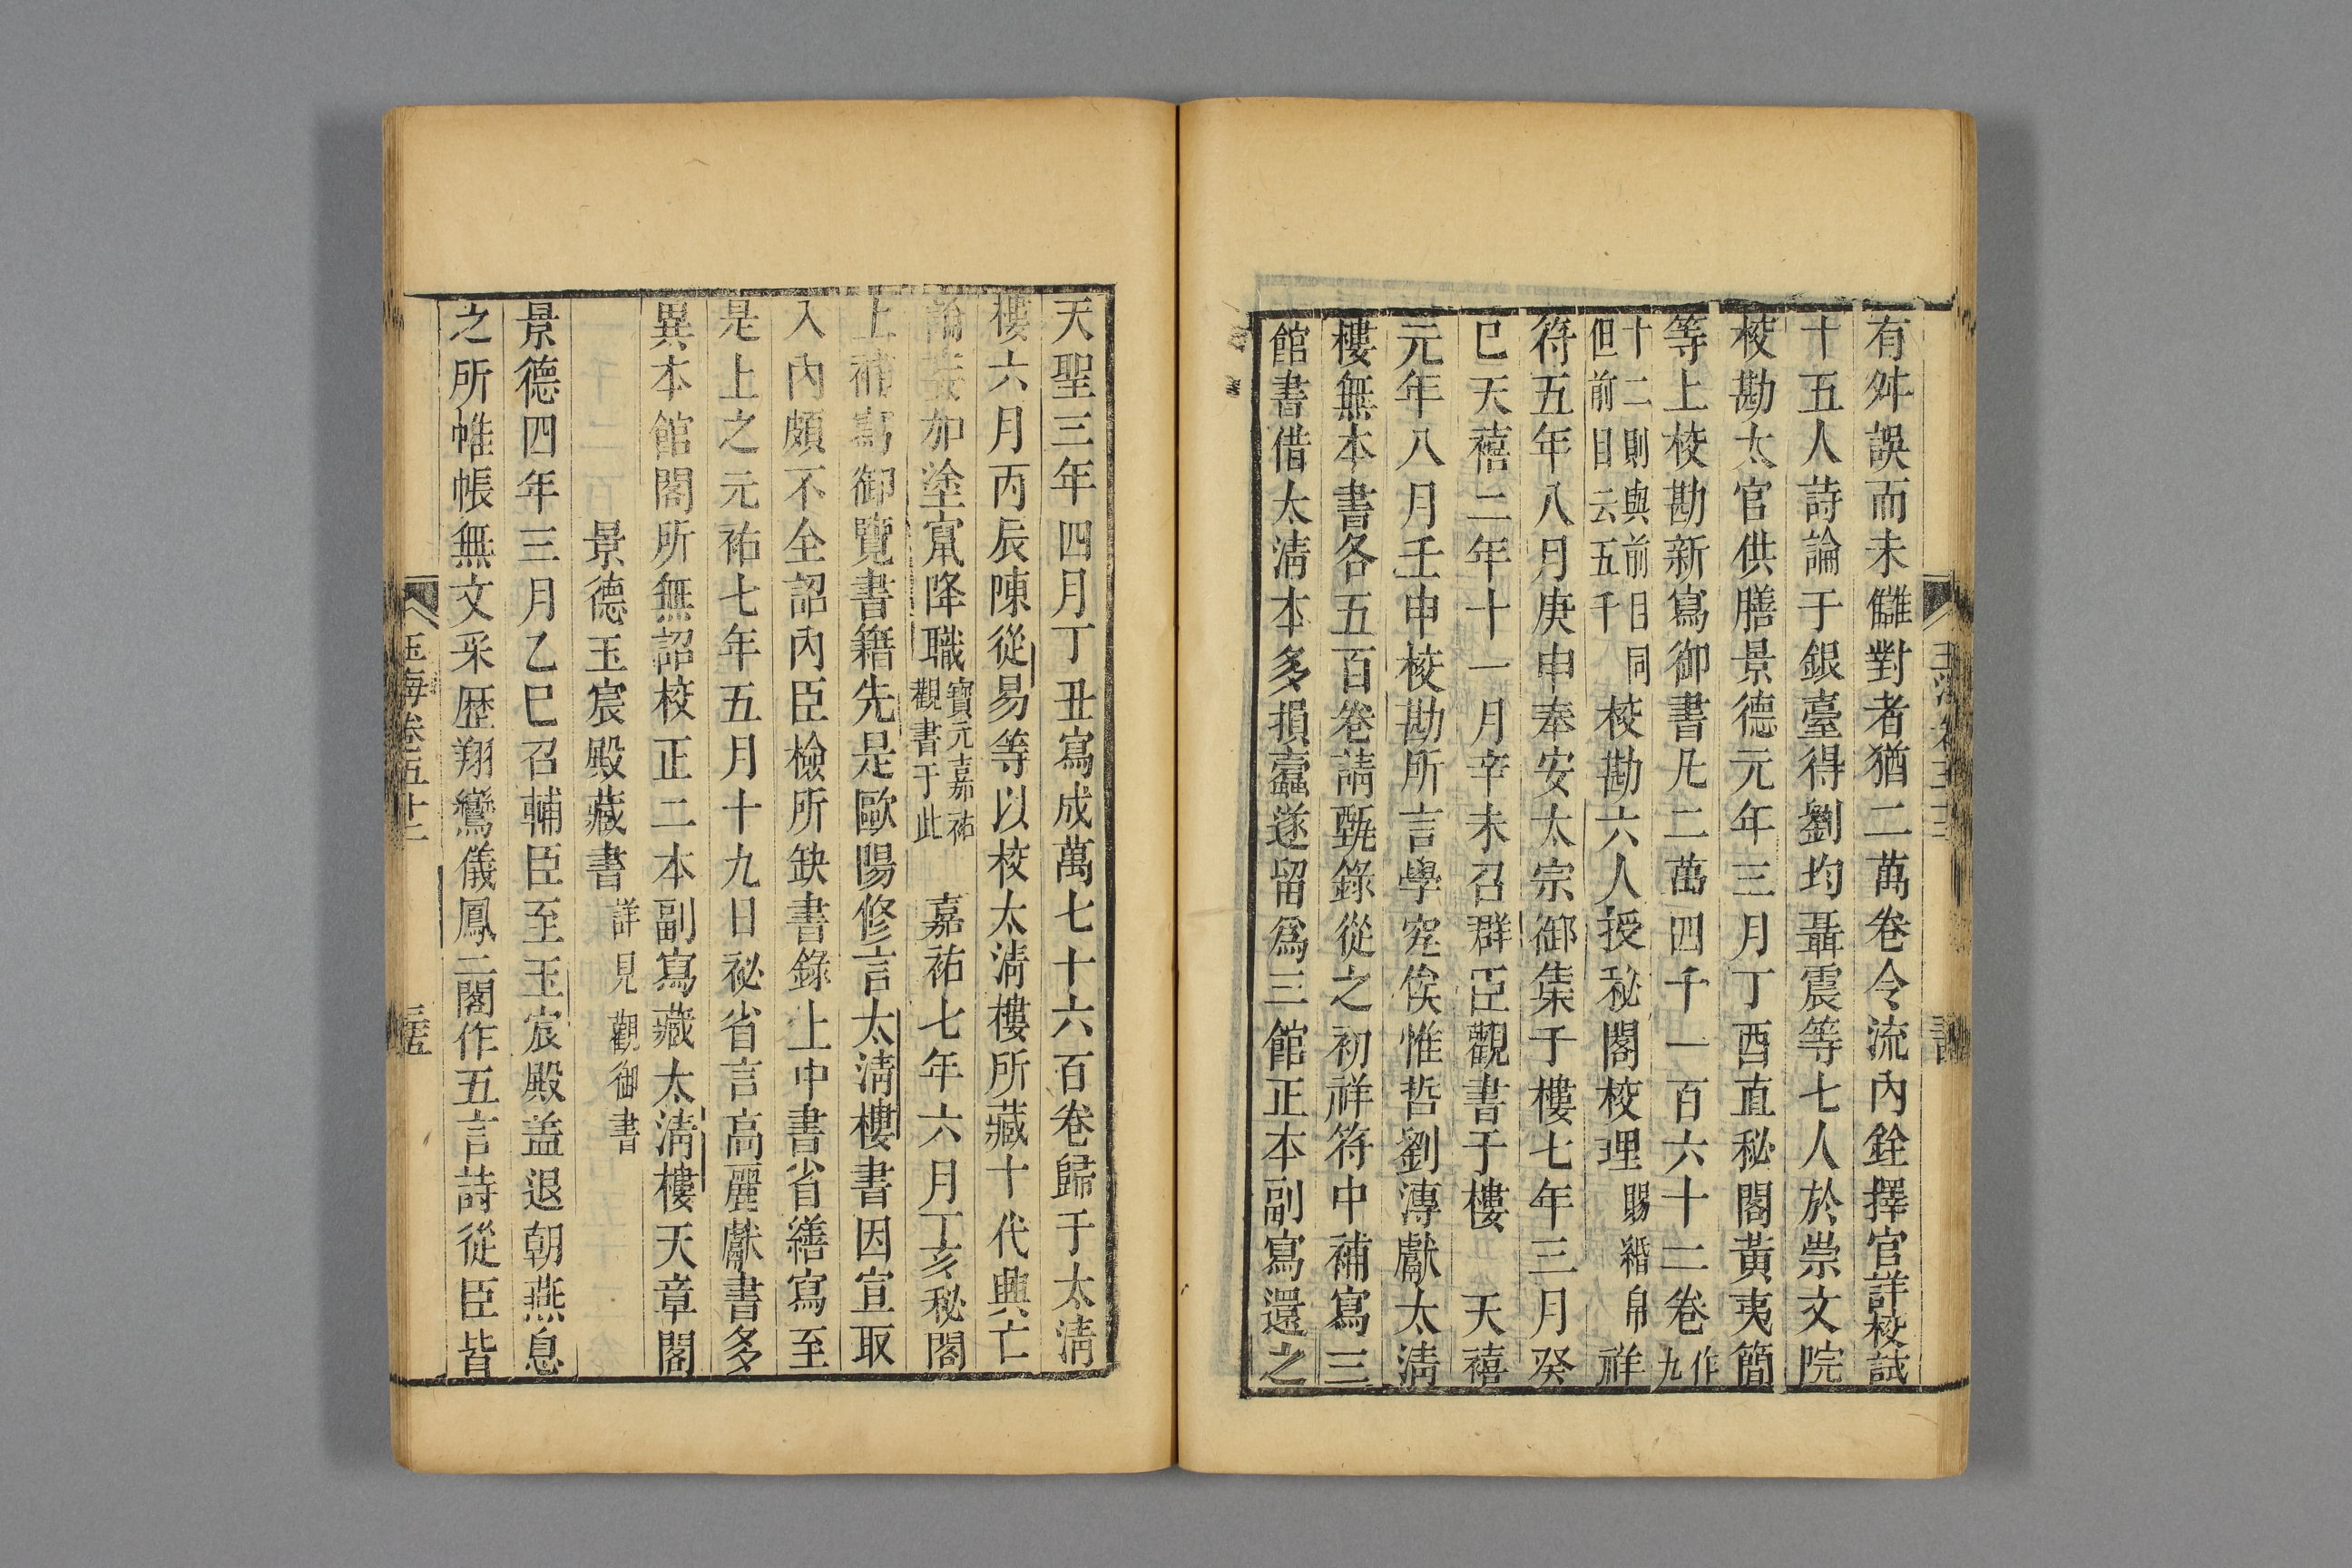 有舛誤而未讎對者猶二萬卷令流內銓擇官詳校試
十五人詩論于銀臺得劉均聶震等七人於崇文院
校勘太官供膳景德元年三月丁酉直秘閣黃夷簡
等上校勘新寫御書凡二萬四千一百六十二卷作九
十二則與前日同
但前日云五千
校勘六人授秘閣校理賜緡帛祥
符五年八月庚申奉安太宗御集于樓七年三月癸
巳天禧二年十一月辛未召群臣觀書于樓 天禧
元年八月壬申校勘所言學究侯惟哲劉溥獻太清
樓無本書各五百卷請甄錄從之初祥符中補寫三
館書借太清本多損蠹遂留為三館正本副寫還之
天聖三年四月丁丑寫成萬七十六百卷歸于太清
樓六月丙辰陳從易等以校太清樓所藏十代興亡
論妄加塗竄降職
寶元嘉祐
觀書于此
嘉祐七年六月丁亥秘閣
上補寫御覽書籍先是歐陽修言太清樓書因宣取
入內頗不全詔內臣檢所缺書錄上中書省繕寫至
是上之元祐七年五月十九日祕省言高麗獻書多
異本館閣所無詔校正二本副寫藏太清樓天章閣
景德玉宸殿藏書 詳見觀御書
景德四年三月乙巳召輔臣至玉宸殿蓋退朝燕息
之所帷帳無文采歷翔鸞儀鳳二閣作五言詩從臣皆
玉海卷五十二